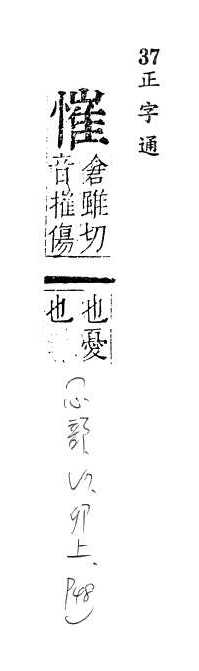 37正字通
慛
倉雖切
音摧傷
也憂
也
(心部 卯上、P48)